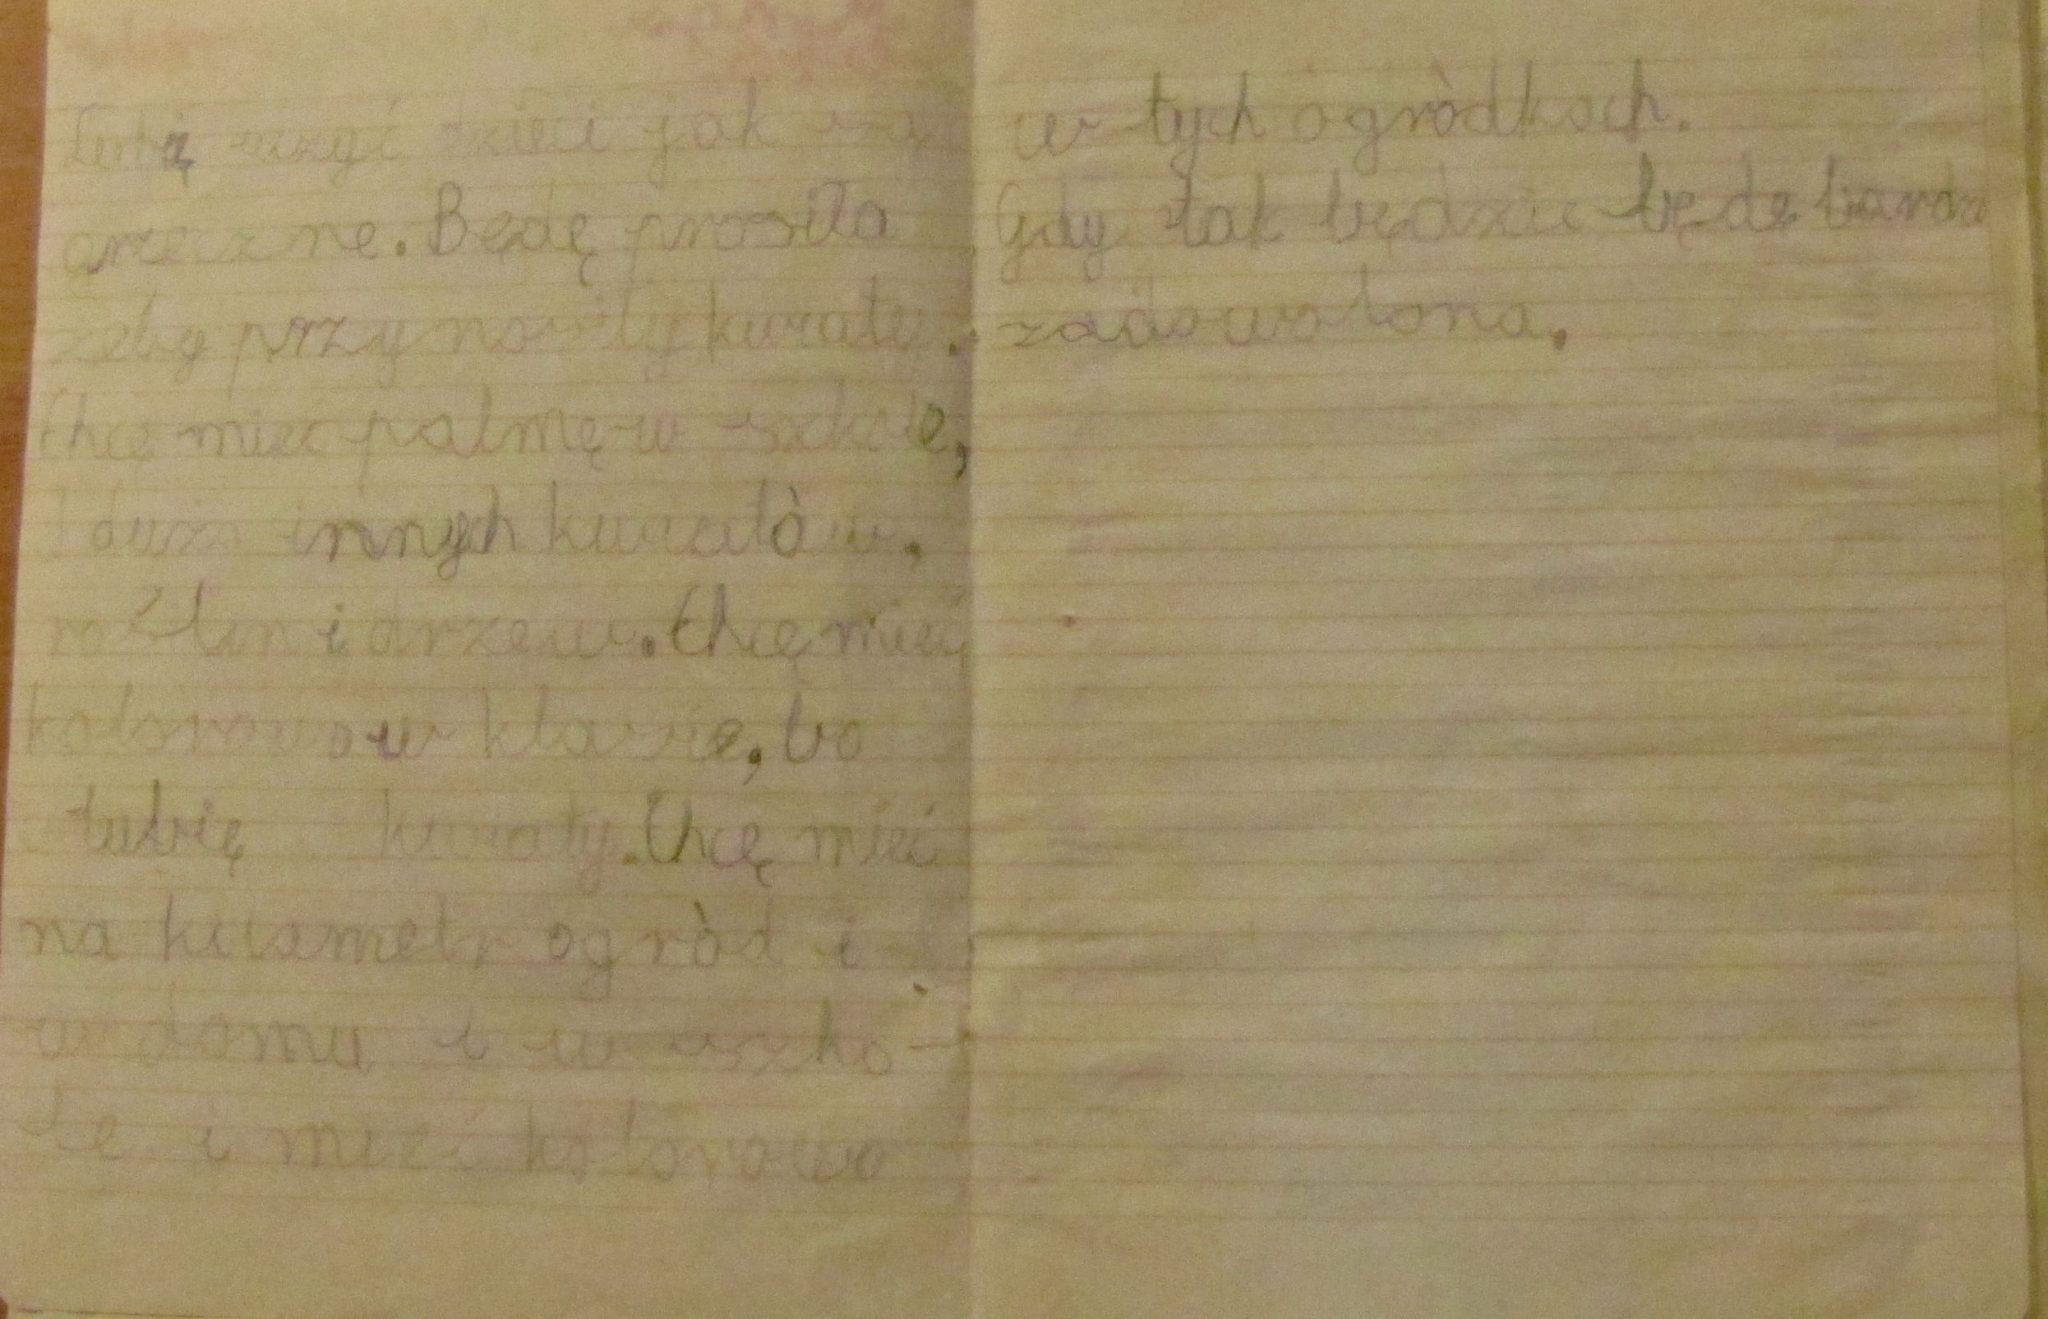 Lubię uczyć dzieci jak są
grzeczne. Będę prosiła
żeby przynosiły kwiaty.
Chcę mieć palmę w szkole,
I dużo innych kwiatów,
roślin i drzew. Chcę mieć
kolorowo w klasie, bo
lubię kwiaty. Chcę mieć
na kilametr ogród i
w domu i w szko-
le i mieć kolorowo
w tych ogródkach.
Gdy tak będzie będę bardzo
zadowolona.